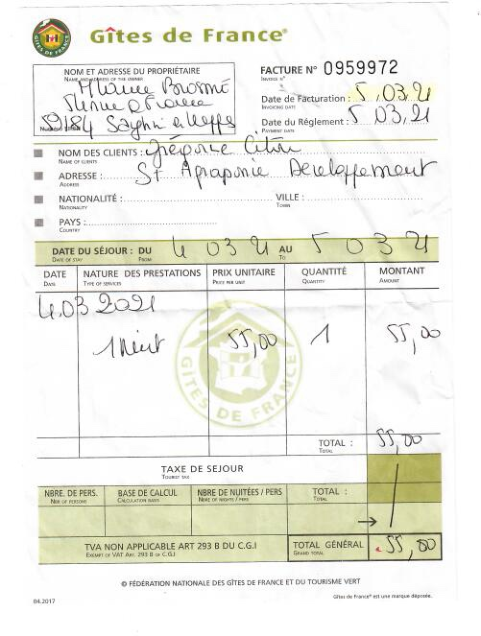 Gîtes de France®
NOM ET ADRESSE DU PROPRIÉTAIRE
NAME AND ADDRESS OF THE OWNER
59184
FACTURE N° 0959972
INVOICE N°
Date de Facturation : 5.03.21
INVOICING DATE
Date du Règlement : 5 03.21
PAYMENT DATE
NOM DES CLIENTS : Grégoire
NAME OF CLIENTS
ADRESSE : St Developpement
ADDRESS
NATIONALITÉ :
NATIONALITY
VILLE :
TOWN
PAYS :
COUNTRY
DATE DU SÉJOUR : DU 4 03 21 AU 5 03 21
DATE OF STAY FROM TO
DATE NATURE DES PRESTATIONS PRIX UNITAIRE QUANTITÉ MONTANT
DATE TYPE OF SERVICES PRICE PER UNIT QUANTITY AMOUNT
4.03 2021
1 Nuit 55,00 1 55,00
GITES DE FRANCE
TOTAL : 55,00
TOTAL
TAXE DE SEJOUR
TOURIST TAX
NBRE. DE PERS. BASE DE CALCUL NBRE DE NUITÉES / PERS TOTAL :
NBR OF PERSONS CALCULATION BASIS NBRE OF NIGHTS / PERS TOTAL
TVA NON APPLICABLE ART 293 B DU C.G.I TOTAL GÉNÉRAL 55,00
EXEMPT OF VAT ART. 293 B C.G.I. GRAND TOTAL
© FÉDÉRATION NATIONALE DES GÎTES DE FRANCE ET DU TOURISME VERT
04.2017
Gîtes de France® est une marque déposée.